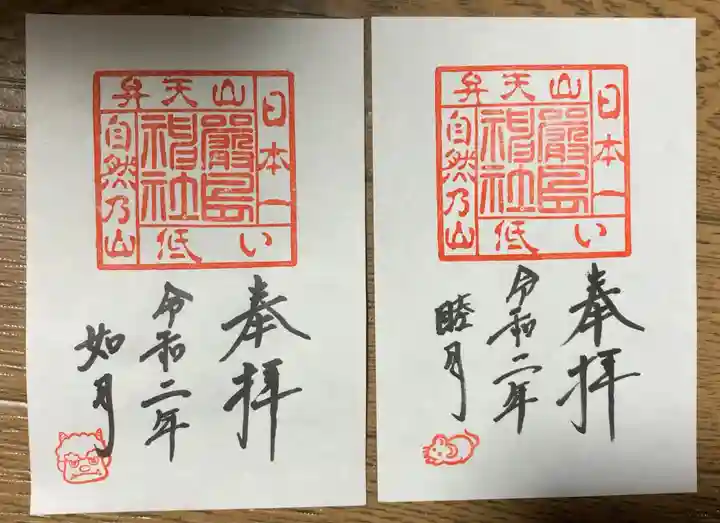 日本一
低い
弁天山
自然乃山
厳島
神社
奉拝
令和二年
如月
日本一
低い
弁天山
自然乃山
厳島
神社
奉拝
令和二年
睦月